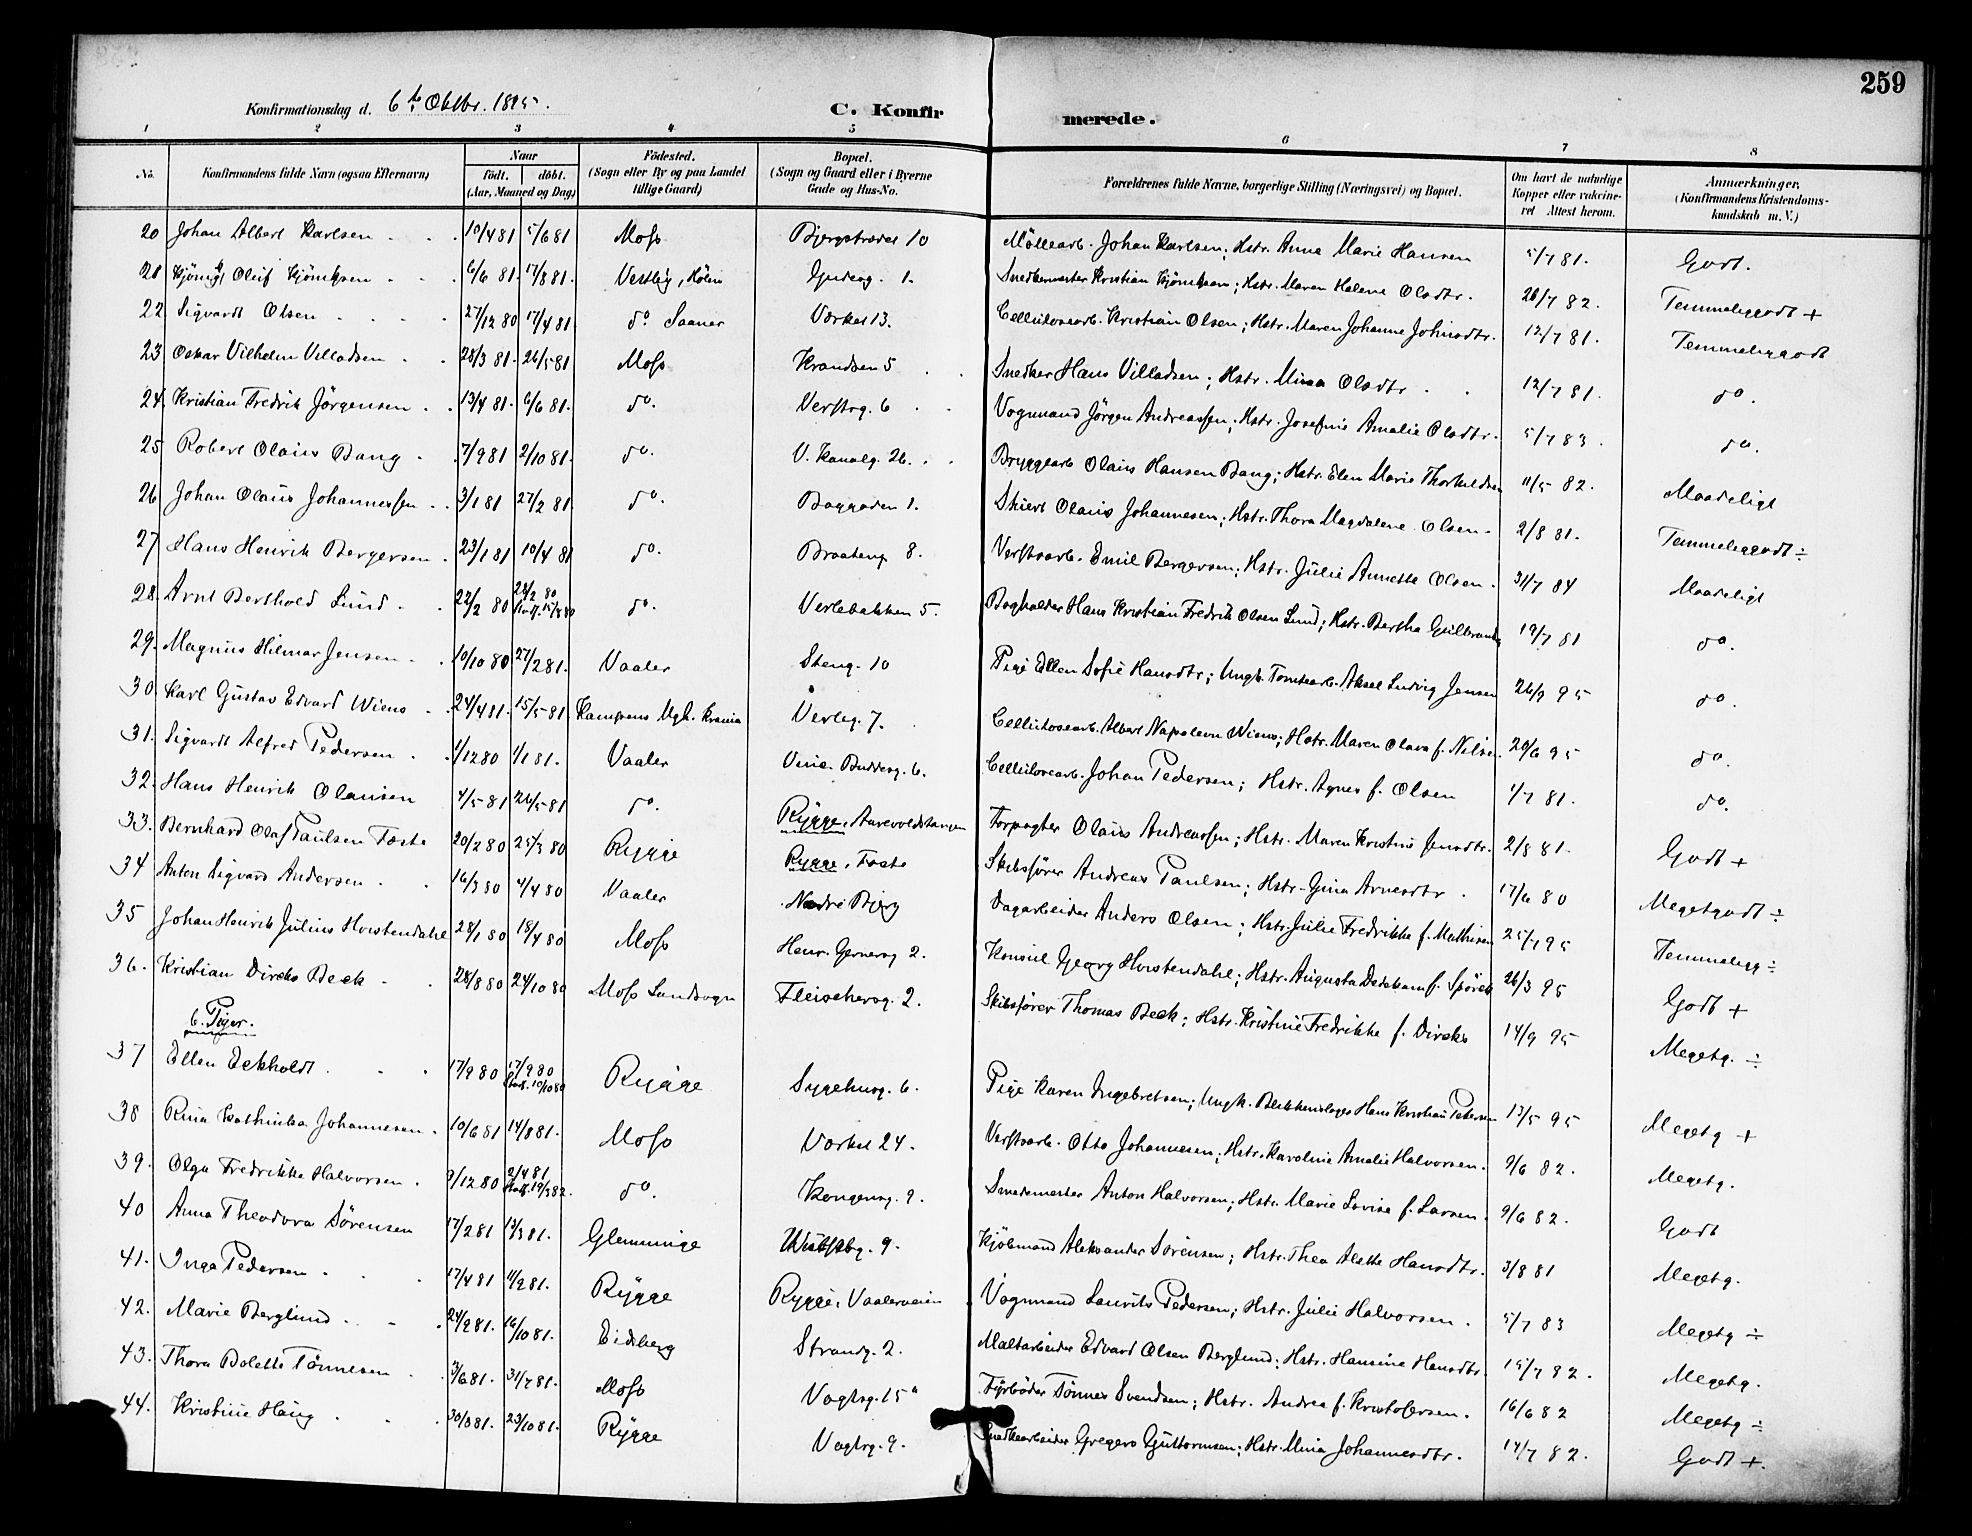 259
Konfirmationsdag d. 6te Oktbr. 1895.
C. Konfirmerede.
1 2 3 4 5 6 7 8
No. Konfirmandens fulde Navn (ogsaa Efternavn) Naar født. døbt. (Aar, Maaned og Dag) Födested. (Sogn eller By og paa Landet tillige Gaard) Bopæl. (Sogn og Gaard eller i Byerne Gade og Hus-No. Forældrenes fulde Navne, borgerlige Stilling (Næringsvei) og Bopæl. Om havt de naturlige Kopper eller vakcineret Attest herom. Anmærkninger, (Konfirmandens Kristendomskundskab m. V.)
20 Johan Albert Karlsen 10/4 81 5/6 81 Moss Bjergstrædet 10 Möllearb. Johan Karlsen; Hstr. Anne Marie Hansen 5/7 81. Godt.
21 Oluf 6/6 81 17/8 81. Vestby, Hölen Gjuderg. 1. Snedkermester Kristian; Hstr. Maren Helene Olsdtr. 26/7 82. Temmeliggodt +
22 Sigvardt Olsen 27/12 80 17/4 81 do. Saaner Værket 13. Cellulosearb. Kristian Olsen; Hstr. Maren Johanne Johnsdtr. 12/7 81. Temmeliggodt
23 Oskar Vilhelm Villadsen 28/3 81. 26/5 81 Moss Krandsen 5 Snedker Hans Villadsen; Hstr. Mina Olsdtr. 12/7 81. do.
24. Kristian Fredrik Jörgensen 13/4 81. 6/6 81. do. Verftsg. 6 Vognmand Jörgen Andreassen; Hstr. Josefine Amalie Olsdtr. 5/7 83. do.
25 Robert Olais Bang 7/9 81 2/10 81. do. V. Kanalg. 26. Bryggearb Olaus Hansen Bang; Hstr. Elen Marie Thorkildsen 11/5 82. Maadeligt
26 Johan Olaüs Johannessen 3/1 81 27/2 81. do. Baggaden 1. Skibst Olaus Johannesen; Hstr. Thora Magdalene Olsen 2/8 81. Temmeliggodt ÷
27 Hans Henrik Bergersen 23/1 81 10/4 81 do. Braateng 8. Verftsarb. Emil Bergersen; Hstr. Julie Annette Olsen. 31/7 84 Maadeligt
28. Arnt Berthold Lund 22/2 80 24/2 80 Stadf. 15/8 80 do. Verlebakken 5. Bogholder Hans Kristian Fredrik Olsen Lund; Hstr. Bertha 19/7 81 do.
29. Magnus Hilmar Jensen 10/10 80 27/2 81. Vaaler Steng. 10 Pige Ellen Sofie Hansdtr; Ungk. Tomtearb. Aksel Ludvig Jensen 26/9 95 do.
30. Karl Gustav Edvard Wiens 24/4 81. 15/5 81 Kampens Mgh. Krania Verleg. 7. Cellulosearb. Albert Napoleon Wiens; Hstr. Maren Olava f. Nilsen 20/6 95 do.
31. Sigvardt Alfred Pedersen 1/12 80 1/1 81. Vaaler Vinc. Buddesg. 6. Cellulosearb. Johan Pedersen; Hstr. Agnes f. Olsen 1/7 81. do.
32. Hans Henrik Olausen 4/5 81 26/5 81 do. Rygge, Aarevoldstangen Forpagter Olaus Andreassen; Hstr. Maren Kristine Jensdtr. 2/8 81. Godt +
33. Bernhard Olaf Paulsen Foste 20/2 80 25/3 80 Rygge Rygge, Foste Skibsfører Andreas Paulsen; Hstr. Gina Arnesdtr. 17/6 80 Megetgodt ÷
34 Anton Sigvard Andersen 16/3 80 4/4 80 Vaaler Nedre Bjerg Dagarbeider Anders Olsen; Hstr. Julie Fredrikke f. Mathisen 25/7 95 Temmeligg ÷
35 Johan Henrik Julius Hvistendahl 28/1 80 18/4 80 Moss Henr. Gernersg 2. Konsul Georg Hvistendahl; Hstr. Augusta f. Spörck 26/3 95 Godt +
36. Kristian Dircks Beck 28/8 80 24/10 80 Moss Landsogn Fleischersg. 2. Skibsfører Thomas Beck; Hstr. Kristine Fredrikke f. Dircks 14/9 95 Megetg. ÷
b. Piger.
37 Ellen Eckholdt 17/9 80 17/9 80 Stadf. 10/10 80 Rygge Sygehusg. 6. Pige Karen Ingebretsen; Ungk. Blikkenslager Hans Kristian Petersen 13/5 95 Megetg +
38 Rina Kathinka Johannesen 10/6 81 14/8 81. Moss Værket 24. Verftsarb. Otto Johannesen; Hstr. Karoline Amalie Halvorsen. 9/6 82. Megetg.
39. Olga Fredrikke Halvorsen 9/12 80 2/4 81 Stadf. 19/3 82. do. Kongensg. 9. Smedemester Anton Halvorsen; Hstr. Marie Lovise f. Larsen. 9/6 82. Godt
40 Anna Theodora Sörensen 17/2 81 13/3 81. Glemminge 9. Kjöbmand Aleksander Sörensen; Hstr. Thea Alette Hansdtr. 3/8 81 Megetg.
41. Inga Pedersen 17/4 81 11/9 81. Rygge Rygge, Vaalerveien Vognmand Laurits Pedersen; Hstr. Julie Halvorsen. 5/7 83 Megetg ÷
42. Marie Berglund 24/9 81. 16/10 81. Eidsberg Strandg. 2. Maltarbeider Edvard Olsen Berglund; Hstr. Hansine Hansdtr. 15/7 82. Megetg.
43. Thora Bolette Tönnesen 3/6 81. 31/7 81. Moss Vogtsg. 15a Fyrböder Tönnes Svendsen; Hstr. Andrea f. Kristofersen. 16/6 82 Megetg ÷
44. Kristine Haug 30/8 81. 23/10 81. Rygge Vogtsg. 9. Gregers Guttormsen; Hstr. Mina Johannesdtr. 14/7 82. Godt +.